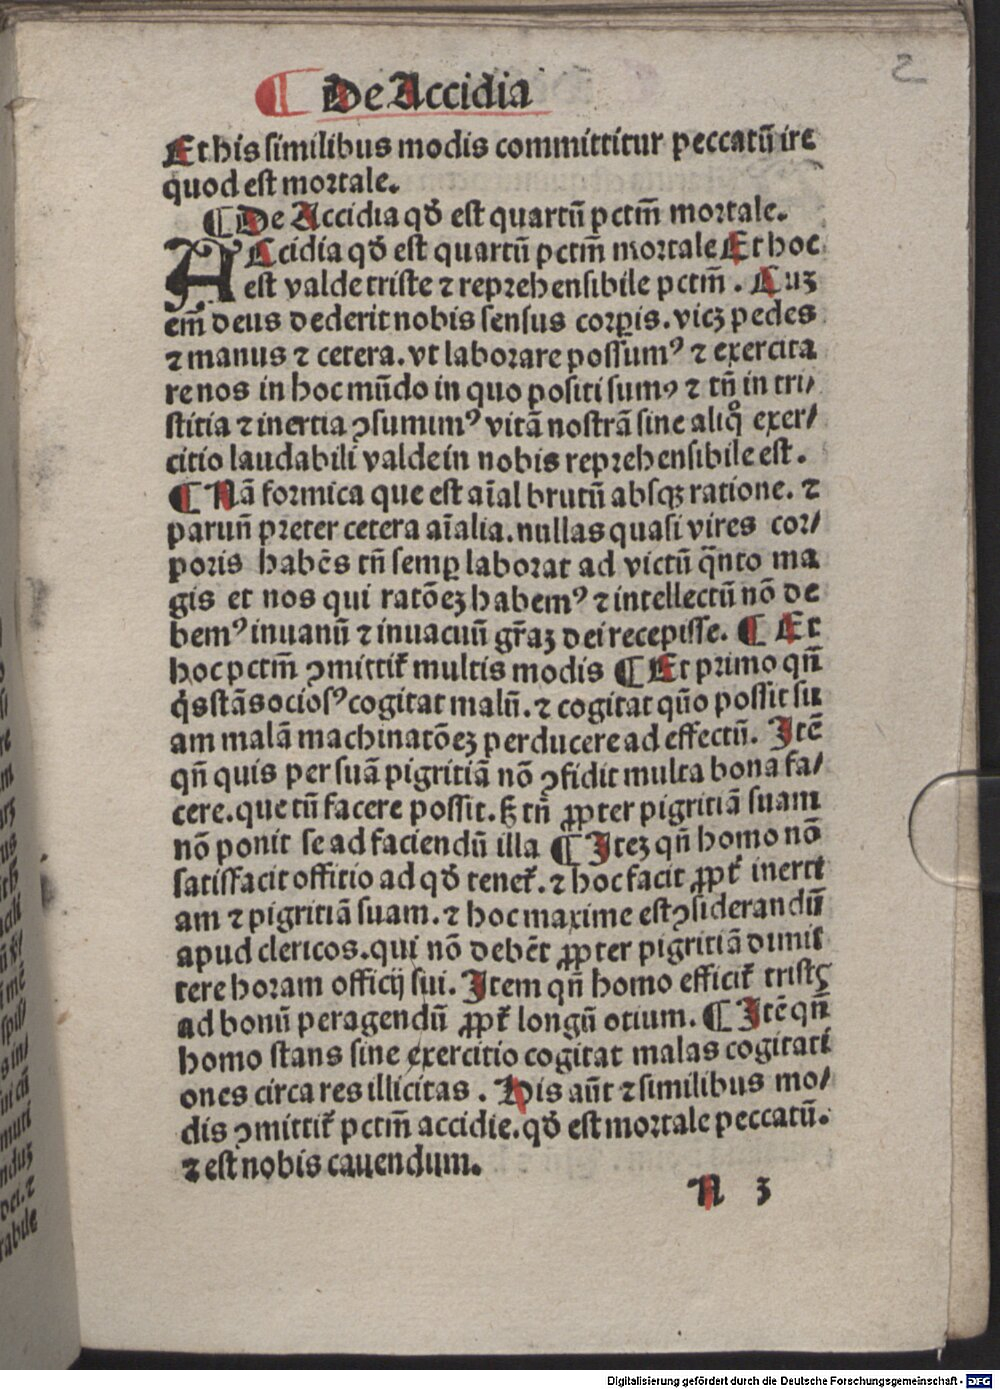 2
¶ De Accidia
Et his similibus modis committitur peccatū ire
quod est mortale.
¶ De Accidia qđ est quartū pctm̄ mortale.
ACcidia qđ est quartū pctm̄ mortale Et hoc
est valde triste ⁊ reprehensibile pctm̄. Cuȝ
em̄ deus dederit nobis sensus corꝑis. vicȝ pedes
⁊ manus ⁊ cetera. vt laborare possumꝰ ⁊ exercita
re nos in hoc mūdo in quo positi sumꝰ ⁊ tn̄ in tri/
stitia ⁊ inertia ꝯsumimꝰ vitā nostrā sine aliqͦ exer/
citio laudabili valde in nobis reprehensibile est.
¶ Nā formica que est aīal brutū absqȝ ratione. ⁊
paruū preter cetera aīalia. nullas quasi vires cor/
poris habēs tn̄ semꝑ laborat ad victū q̄nto ma
gis et nos qui ratōeȝ habemꝰ ⁊ intellectū nō de
bemꝰ inuanū ⁊ inuacuū gr̄aȝ dei recepisse. ¶ Et
hoc pctm̄ ꝯmittit᷑ multis modis ¶ Et primo qn̄
q̇s stās ociosꝰ cogitat malū. ⁊ cogitat quō possit su
am malā machinatōeȝ perducere ad effectū. Itē
qn̄ quis per suā pigritiā nō ꝯfidit multa bona fa/
cere. que tn̄ facere possit. sȝ tn̄ ꝓpter pigritiā suam
nō ponit se ad faciendū illa ¶ Iteȝ qn̄ homo nō
satisfacit offitio ad qđ tenet᷑. ⁊ hoc facit ꝓpt᷑ inerti
am ⁊ pigritiā suam. ⁊ hoc maxime est ꝯsiderandū
apud clericos. qui nō debēt ꝓpter pigritiā dimit
tere horam officij sui. Item qn̄ homo efficit᷑ tristꝭ
ad bonū peragendū ꝓpt᷑ longū otium. ¶ Itē qn̄
homo stans sine exercitio cogitat malas cogitati
ones circa res illicitas. His aūt ⁊ similibus mo/
dis ꝯmittit᷑ pctm̄ accidie. qđ est mortale peccatū.
⁊ est nobis cauendum.
N 3
Digitalisierung gefördert durch die Deutsche Forschungsgemeinschaft - DFG